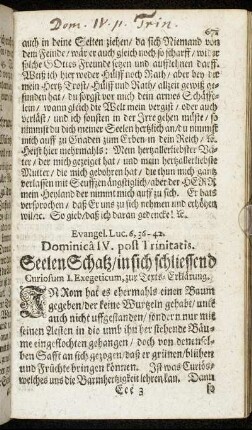 Dom. IV. p. Trin.
auch in deine Seiten ziehen / da sich Niemand von
dem Feinde / wär er auch gleich noch so scharff / wider
solche GOttes Freunde setzen und aufflehnen darff.
Weiß ich hier weder Hülff noch Rath / aber bey dir
mein Hertz Trost / Hülff und Rath / allzeit gewiß ge-
funden hat / du sorgst vor mich dein armes Schäff-
lein / wann gleich die Welt mein vergißt / oder auch
verläst / und ich sonsten in der Irre gehen müste / so
nimmst du dich meiner Seelen hertzlich an / du nimmst
mich auff zu Gnaden zum Erben in dein Reich / &c.
Heist hier nichtmahls: Mein hertzallerliebster Va-
ter / der mich gezeiget hat / und mein hertzallerliebste
Mutter / die mich gebohren hat / die thun mich gantz
verlassen mit Seufftzen ängstiglich / aber der HERR
mein Heyland der nimmt mich auff zu sich. Er hats
versprochen / daß Er uns zu sich nehmen und erhöhen
wil / &c. So gieb / daß ich daran gedencke! &c.
Evangel. Luc. 6, 36-42.
Dominicâ IV. post Trinitatis.
Seelen Schatz / in sich schliessend
Curiosum I. Exegeticum, zur Texts-Erklärung.
IN Rom hat es ehermahls einen Baum
gegeben / der keine Wurtzeln gehabt / und
auch nicht uffgestanden / sondern nur mit
seinen Aesten in die umb ihn her stehenden Bäu-
me eingeflochten gehangen / doch von denensel-
ben Safft an sich gezogen / daß er grünen / blühen
und Früchte bringen können. Ist was Curiös,
welches uns die Barmhertzigkeit lehren kan. Dann
Ccc 3